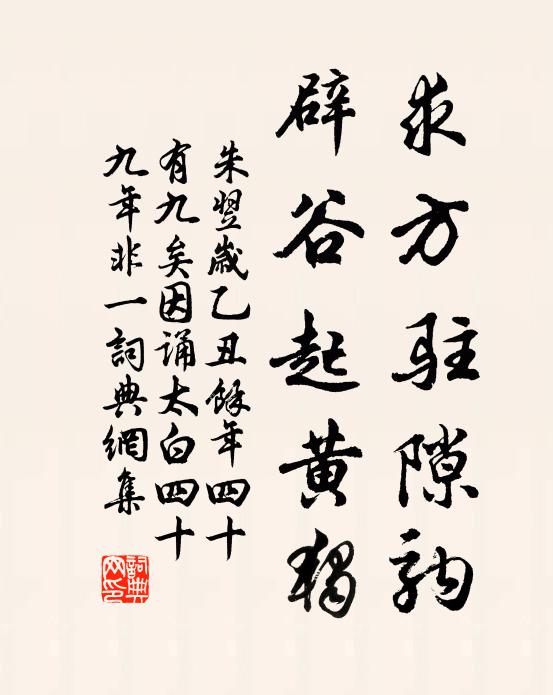 求方駐隙駒
辟谷起黄獨
朱翌歲乙丑餘年四十
有九矣因誦太白四十
九年非一詞典網集
詞典
网印